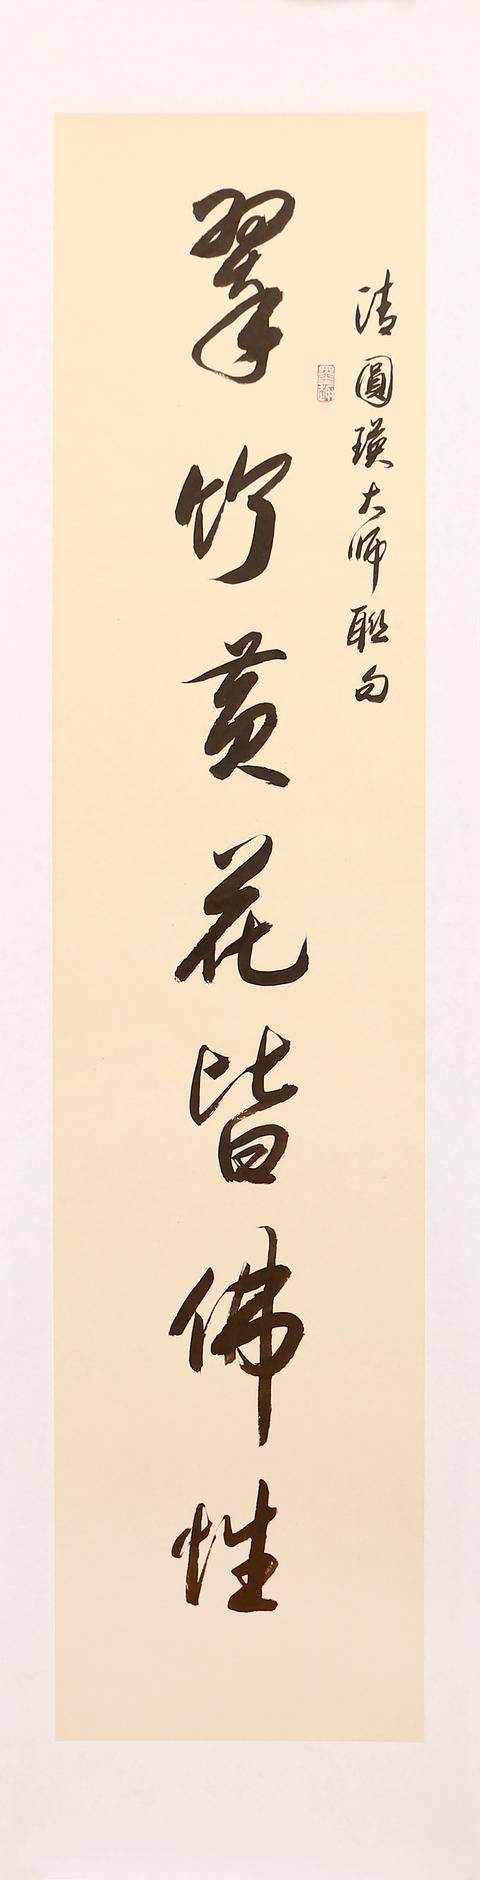 清圓瑛大師聯句
翠竹黃花皆佛性